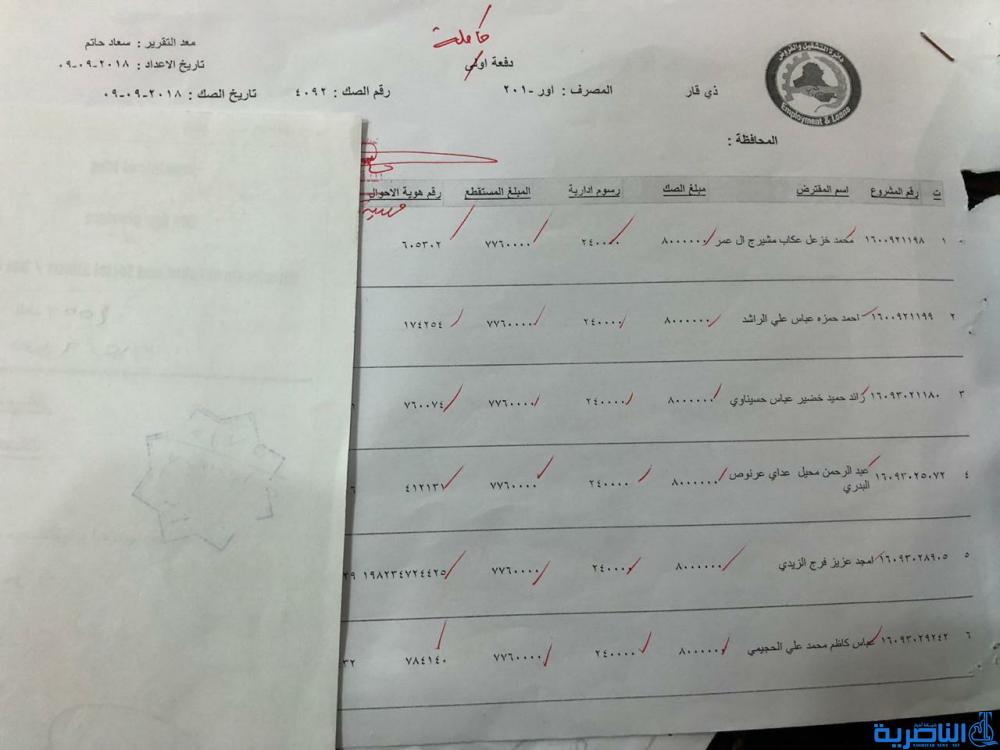 كاملة
معد التقرير : سعاد حاتم
دفعة اولى
تاريخ الاعداد : ٢٠١٨-٠٩-٠٩
دائرة التشغيل والقروض
Employment & Loans
ذي قار
المصرف : اور -٢٠١
رقم الصك : ٤٠٩٢
تاريخ الصك : ٢٠١٨-٠٩-٠٩
المحافظة :
ت رقم المشروع اسم المقترض مبلغ الصك رسوم ادارية المبلغ المستقطع رقم هوية الاحوال
١ ١٦٠٠٩٢١١٩٨ محمد خزعل عكاب مشيرج ال عمر ٨٠٠٠٠٠٠ ٢٤٠٠٠٠ ٧٧٦٠٠٠٠ ٦٠٥٣٠٢
٢ ١٦٠٠٩٢١١٩٩ احمد حمزه عباس علي الراشد ٨٠٠٠٠٠٠ ٢٤٠٠٠٠ ٧٧٦٠٠٠٠ ١٧٤٢٥٤
٣ ١٦٠٩٣٠٢١١٨٠ رائد حميد خضير عباس حسيناوي ٨٠٠٠٠٠٠ ٢٤٠٠٠٠ ٧٧٦٠٠٠٠ ٧٦٠٠٧٤
٤ ١٦٠٩٣٠٢٥٠٧٢ عبد الرحمن محيل عداي عرنوص ٨٠٠٠٠٠٠ ٢٤٠٠٠٠ ٧٧٦٠٠٠٠ ٤١٢١٣١
البدري
٥ ١٦٠٩٣٠٢٨٩٠٥ امجد عزيز فرج الزيدي ٨٠٠٠٠٠٠ ٢٤٠٠٠٠ ٧٧٦٠٠٠٠ ١٩٨٢٣٤٧٢٤٤٢٥ ٢٩
٦ ١٦٠٩٣٠٢٩٢٤٢ عباس كاظم محمد علي الحجيمي ٨٠٠٠٠٠٠ ٢٤٠٠٠٠ ٧٧٦٠٠٠٠ ٧٨٤١٤٠ ٣٢
الناصرية